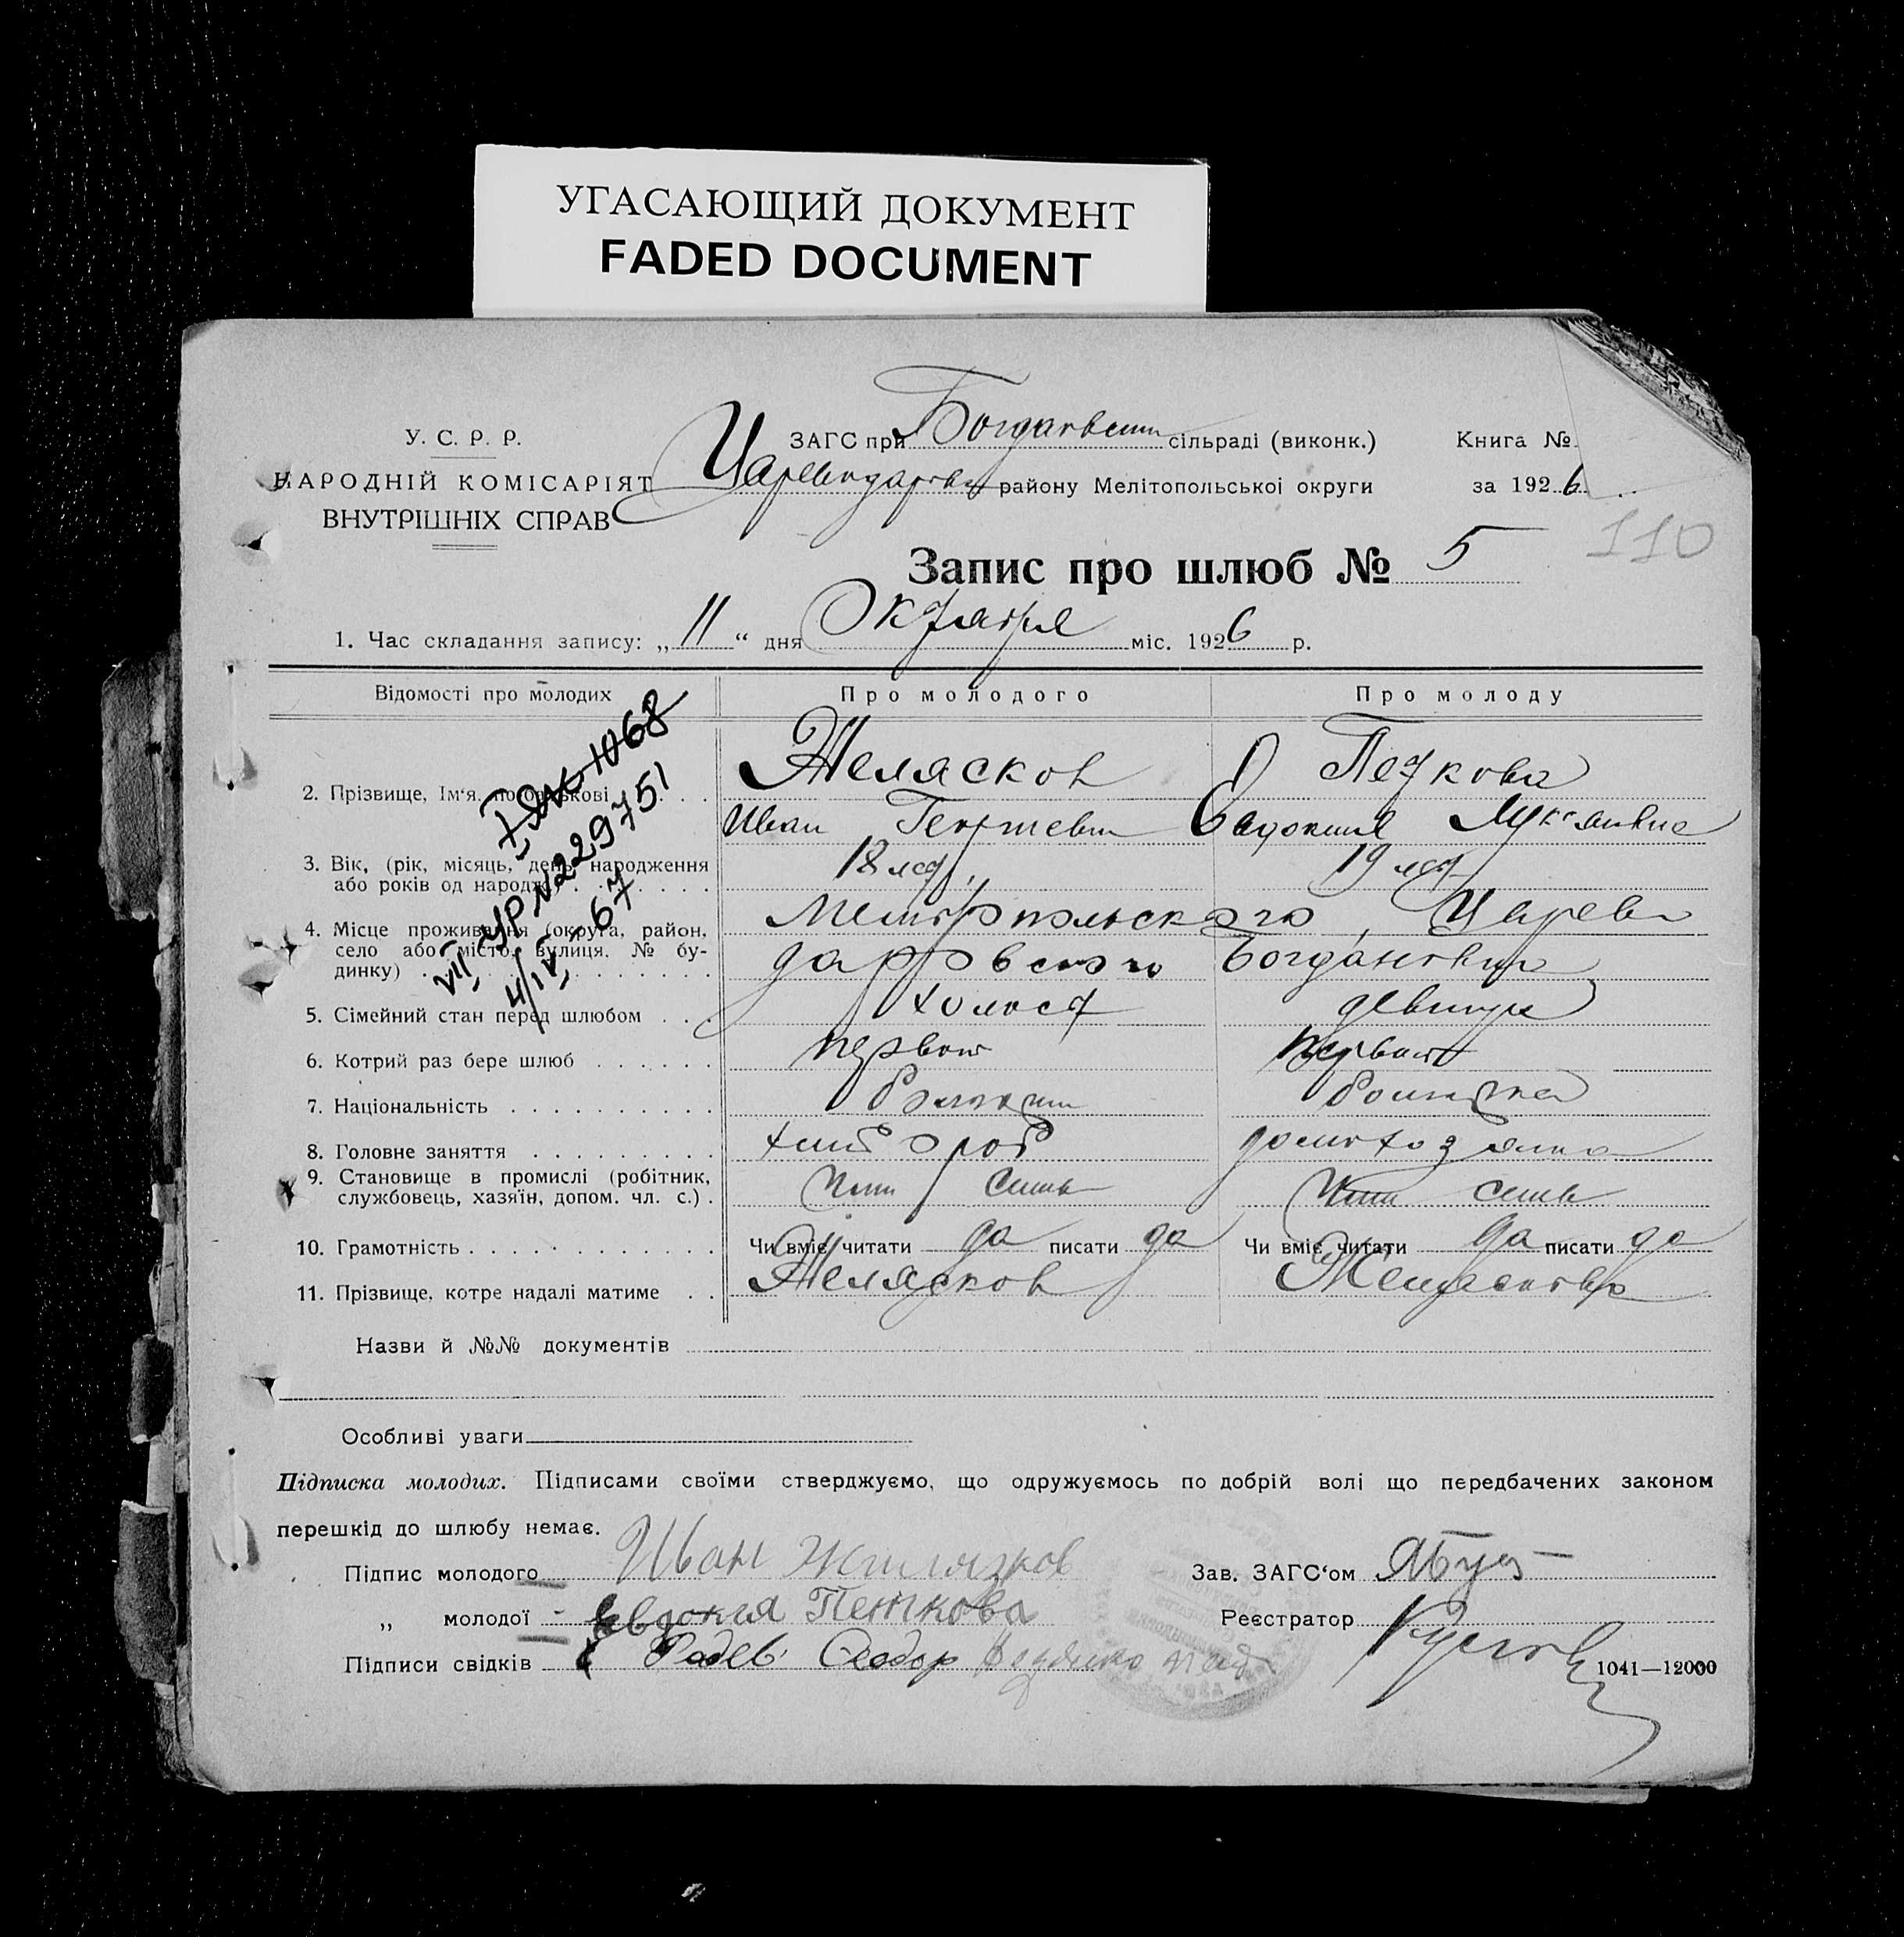 УГАСАЮЩИЙ ДОКУМЕНТ
FADED DOCUMENT
У. С. Р. Р.
НАРОДНІЙ КОМІСАРІЯТ
ВНУТРІШНІХ СПРАВ
ЗАГС при сільраді (виконк.)
району Мелітопольської округи
Книга №
за 1926
110
Запис про шлюб № 5
1. Час складання запису: „11“ дня Октября міс. 1926 р.
Відомості про молодих
Про молодого
Про молоду
2. Прізвище, Ім'я, по батькові . . .
Желясков
Иван Георгиевич
Петкова
Евдокия
3. Вік, (рік, місяць, день народження
або років од народж.) . . . . . . .
18 лет
19 лет
4. Місце проживання (округа, район,
село або місто, вулиця, № бу-
динку) . . . . . . . . . . . . .
Мелитопольского, Царево
даровского Богдановка
5. Сімейний стан перед шлюбом . . .
холост
девица
6. Котрий раз бере шлюб . . . . . .
первый
первый
7. Національність . . . . . . . . . .
Болгарин
Болгарка
8. Головне заняття . . . . . . . . .
хлебороб
домохозяйка
9. Становище в промислі (робітник,
службовець, хазяїн, допом. чл. с.) .
член семьи
член семьи
10. Грамотність . . . . . . . . . . . .
Чи вміє читати да писати да
Чи вміє читати да писати да
11. Прізвище, котре надалі матиме . .
Желясков
Желяскова
VII УР №229751
4/IV-67
Назви й №№ документів
Особливі уваги
Підписка молодих. Підписами своїми стверджуємо, що одружуємось по добрій волі що передбачених законом
перешкід до шлюбу немає.
Підпис молодого Иван
„ молодої Евдокия Петкова
Підписи свідків Радев Феодор
Зав. ЗАГС'ом
Реєстратор
1041—12000